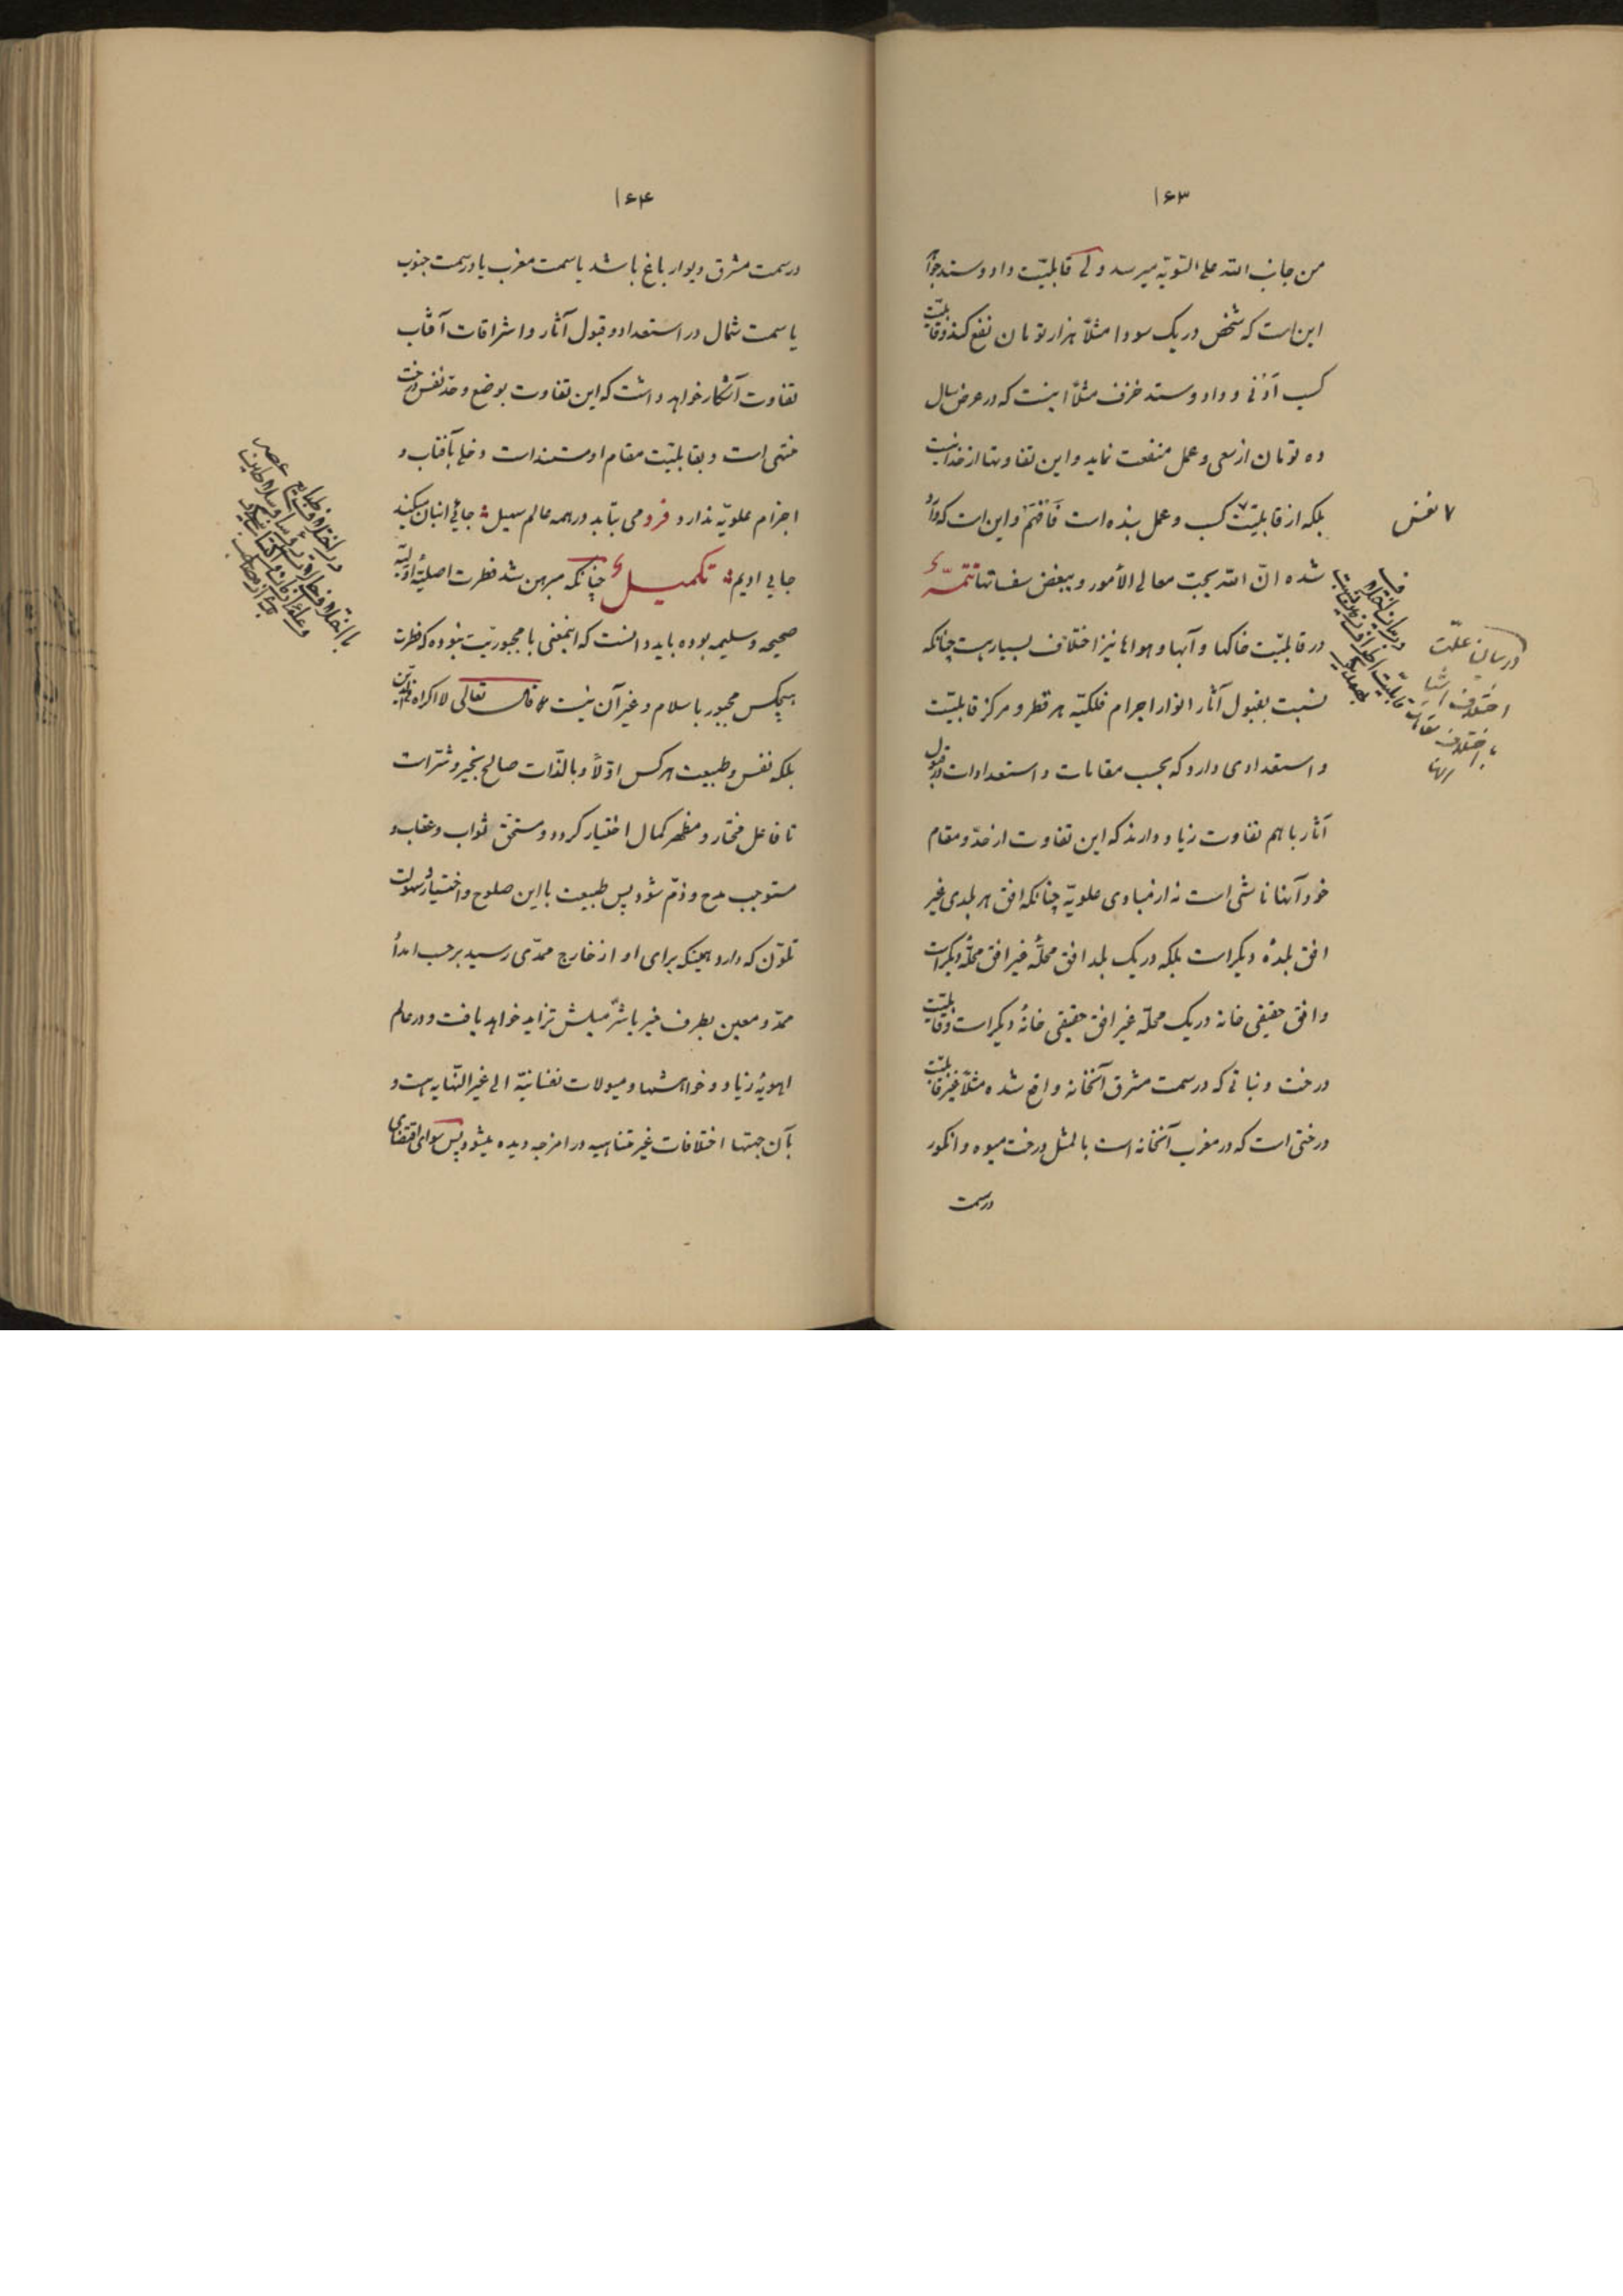 ۱۶۳
من جانب الله علی السّویّه میرسد ولی قابلیّت داد و ستد جواهر
این است که شخص در یک سودا مثلاً هزار تومان نفع کند و قابلیّت
کسب أدنی و داد و ستد خزف مثلاً اینست که در عرض سال
ده تومان از سعی و عمل منفعت نماید و این تفاوتها از خدا نیست
بلکه از قابلیّت کسب و عمل بنده است فَافْهَمْ و این است که وارد
۷ نفس
شده انّ الله یحبّ معالی الأمور و یبغض سفسافها تتمّهٔ
در قابلیّت خاکها و آبها و هواها نیز اختلاف بسیار هست چنانکه
نسبت بقبول آثار انوار اجرام فلکیّه هر قطر و مرکز قابلیّت
و استعدادی دارد که بحسب مقامات و استعدادات در قبول
آثار با هم تفاوت زیاد دارند که این تفاوت از حدّ و مقام
خود آنها ناشی است نه از مبادی علویّه چنانکه افق هر بلدی غیر
افق بلدهٔ دیگر است بلکه در یک بلد افق محلّهٔ غیر افق محلّهٔ دیگر است
و افق حقیقی خانه در یک محلّه غیر افق حقیقی خانهٔ دیگر است و قابلیّت
درخت و نباتی که در سمت مشرق آنخانه واقع شده مثلاً غیر قابلیّت
درختی است که در مغرب آنخانه است بالمثل درخت میوه و انگور
در سمت
در بیان علّت
اختلاف اشیا
باختلاف مقامات
آنها
۱۶۴
در سمت مشرق دیوار باغ باشد یا سمت مغرب یا در سمت جنوب
یا سمت شمال در استعداد و قبول آثار و اشراقات آفتاب
تفاوت آشکار خواهد داشت که این تفاوت بوضع و حدّ نفس درخت
منتهی است و بقابلیّت مقام او مستند است دخلی بآفتاب و
اجرام علویّه ندارد فرد می بتابد در همه عالم سهیل جائی انبان میکند
جایی ادیم تکمیلٌ چنانکه مبرهن شد فطرت اصلیّهٔ اوّلیّه
صحیحه و سلیمه بوده باید دانست که اینمعنی با مجبوریّت نبوده که فطرت
هیچکس مجبور باسلام و غیر آن نیست قال تعالی لا اکراه فی الدّین
بلکه نفس و طبیعت هر کس اوّلاً و بالذّات صالح بخیر و شرّ است
تا فاعل مختار و مظهر کمال اختیار گردد و مستحقّ ثواب و عقاب و
مستوجب مدح و ذمّ شود پس طبیعت با این صلوح و اختیار و سهولت
تلوّن که دارد همینکه برای او از خارج ممدّی رسید برحسب امداد
ممدّ و معین بطرف خیر یا شرّ میلش تزاید خواهد یافت و در عالم
اهویهٔ زیاد و خواهشها و میولات نفسانیّه الی غیر النّهایه هست و
بآن جهتها اختلافات غیر متناهیه در امزجه دیده میشود پس سوای اقتضای